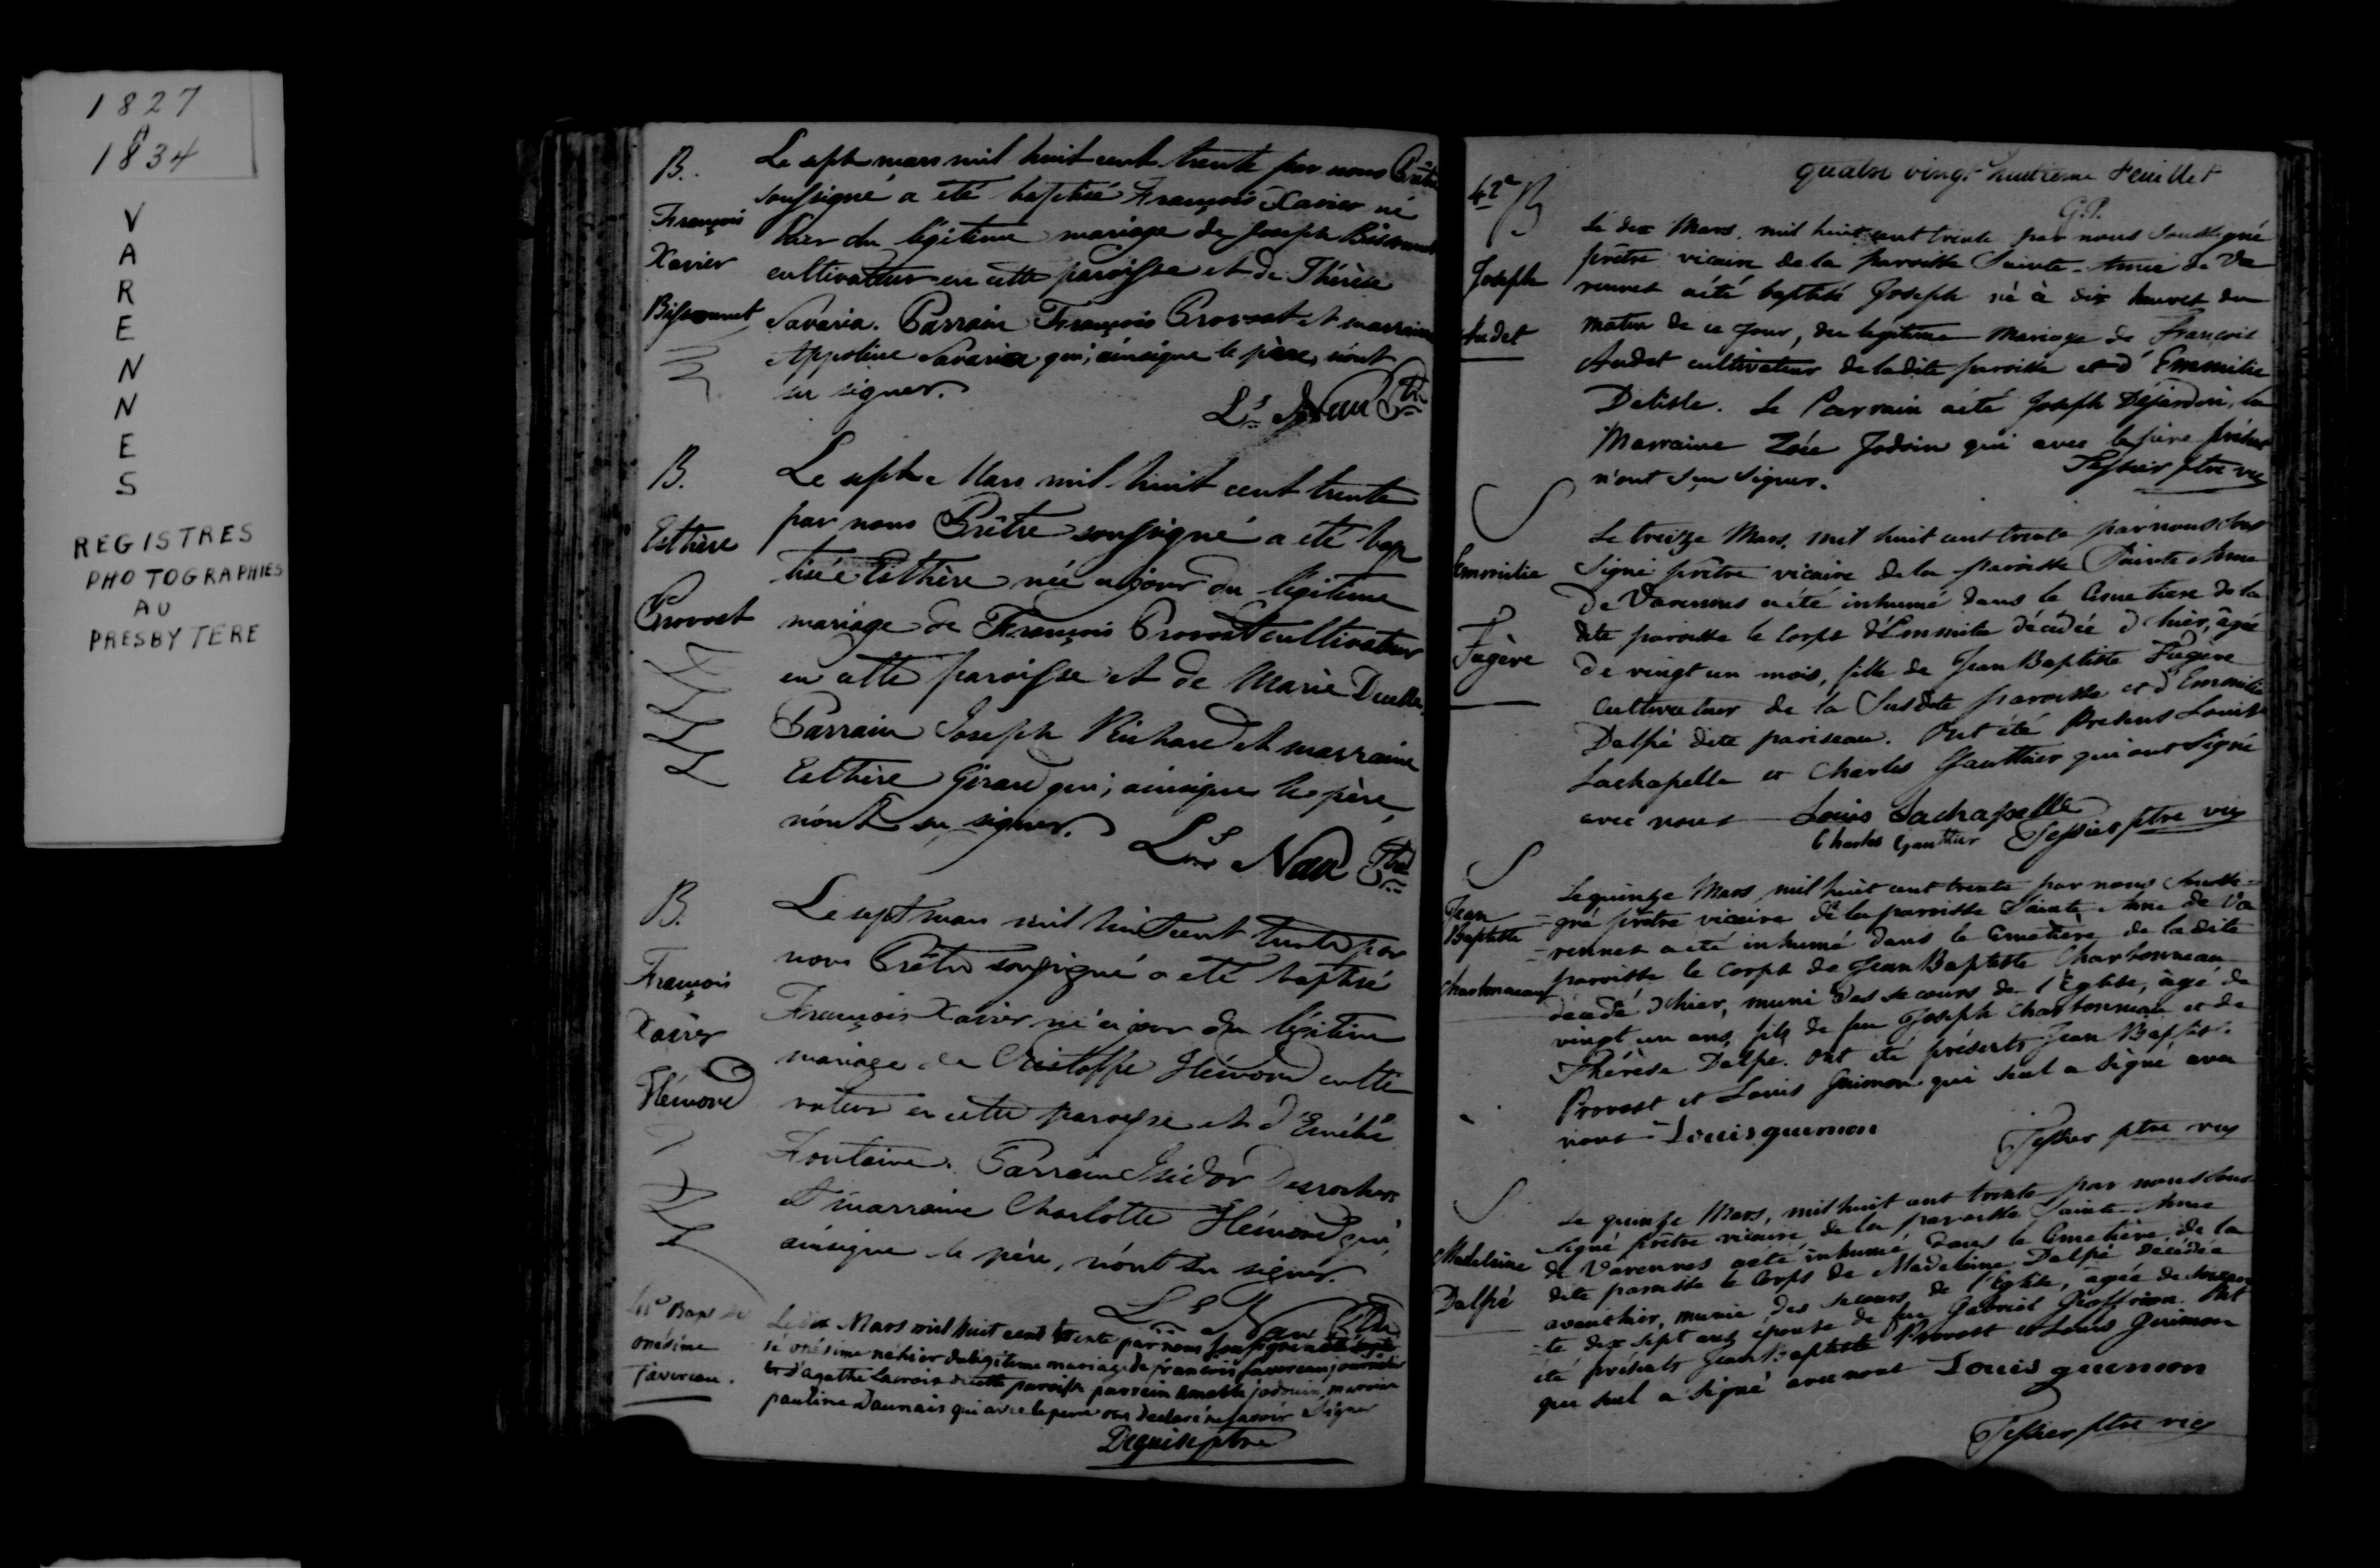 1827
à
1834
VARENNES
REGISTRES
PHOTOGRAPHIES
AU
PRESBYTERE
B.
François
Xavier
Bissonnet
Le sept mars mil huit cent trente par nous Prêtre
soussigné a été baptisé François Xavier né
hier du légitime mariage de Joseph Bissonnet
cultivateur en cette paroisse et de Thérèse
Savaria. Parrain François Provost et marraine
Appoline Savaria qui, ainsique le père, n'ont
su signer.
Ls Nau Ptre
B.
Esthère
Provost
Le sept Mars mil huit cent trente
par nous Prêtre soussigné a été bap
tisée Esthère née ce jour du légitime
mariage de François Provost cultivateur
en cette paroisse et de Marie
Parrain Joseph Richard et marraine
Esthère Girard qui, ainsique le père,
n'ont su signer.
Ls Nau Ptre
B.
François
Xavier
Hémond
Le sept mars mil huit cent trente par
nous Prêtre soussigné a été baptisé
François Xavier né ce jour du légitime
mariage de Cristoffe Hémond culti
vateur en cette paroisse et d'
Fontaine. Parrain Isidor Desrochers
et marraine Charlotte Hémond qui,
ainsique le père, n'ont su signer.
Ls Nau Ptre
41e Bapt de
onésime
favereau.
Le dix Mars mil huit cent trente par nous soussigné a été
sé onésime né hier du légitime mariage de françois favereau journalier
et d'agathe Lacroix de cette paroisse parrein amable jodouin marraine
pauline Daunais qui avec le pere ont declaré ne savoir signer
Deguise ptre
quatre vingt huitieme feuillet
G.P.
42e B
Joseph
Audet
Le dix Mars, mil huit cent trente par nous soussigné
prêtre vicaire de la paroisse Sainte-Anne de Va
rennes a été baptisé Joseph né à dix heures du
matin de ce jour, du legitime mariage de François
Audet cultivateur de ladite paroisse et d'Emmilie
Delisle. Le Parrain a été Joseph Déjardin, la
Marraine Zoée Jodoin qui avec le père présent
n'ont sçu signer.
Tessier ptre vic
S
Emmilie
Fugère
Le treize Mars, mil huit cent trente par nous sous
signé prêtre vicaire de la paroisse Sainte Anne
de Varennes a été inhumé dans le Cimetiere de la
dite paroisse le Corps d'Emmilie décédée d'hier, âgée
de vingt un mois, fille de Jean Baptiste Fugère
Cultivateur de la Susdite paroisse et d'Emmilie
Dalpé dite pariseau. Ont été Présens Louis
Lachapelle et Charles Gauthier qui ont signé
avec nous
Louis Lachapelle
Charles Gauthier
Tessier ptre vic
S
Jean
Baptiste
Charbonneau
Le quinze Mars, mil huit cent trente par nous soussi=
=gné prêtre vicaire de la paroisse Sainte-Anne de Va
=rennes a été inhumé dans le Cimetière de ladite
paroisse le corps de Jean Baptiste Charbonneau
décédé d'hier, muni des secours de l'Eglise, âgé de
vingt un ans, fils de feu Joseph Charbonneau et de
Thérèse Dalpe. Ont été présents Jean Baptiste
Provost et Louis Guimon qui seul a signé avec
nous
Louis guemon
Tessier ptre vic
S
Madeleine
Dalpé
Le quinze Mars, mil huit cent trente par nous sous
signé prêtre vicaire de la paroisse Sainte Anne
de Varennes a été inhumé dans le Cimetière de la
dite paroisse le Corps de Madeleine Dalpé décédée
avant hier, munie des secours de l'Eglise, âgée de soixan
=te dix sept ans, épouse de feu Gabriel Geoffrion. Ont
été présents Jean Baptiste Provost et Louis Guimon
qui seul a signé avec nous Louis guemon
Tessier ptre vic